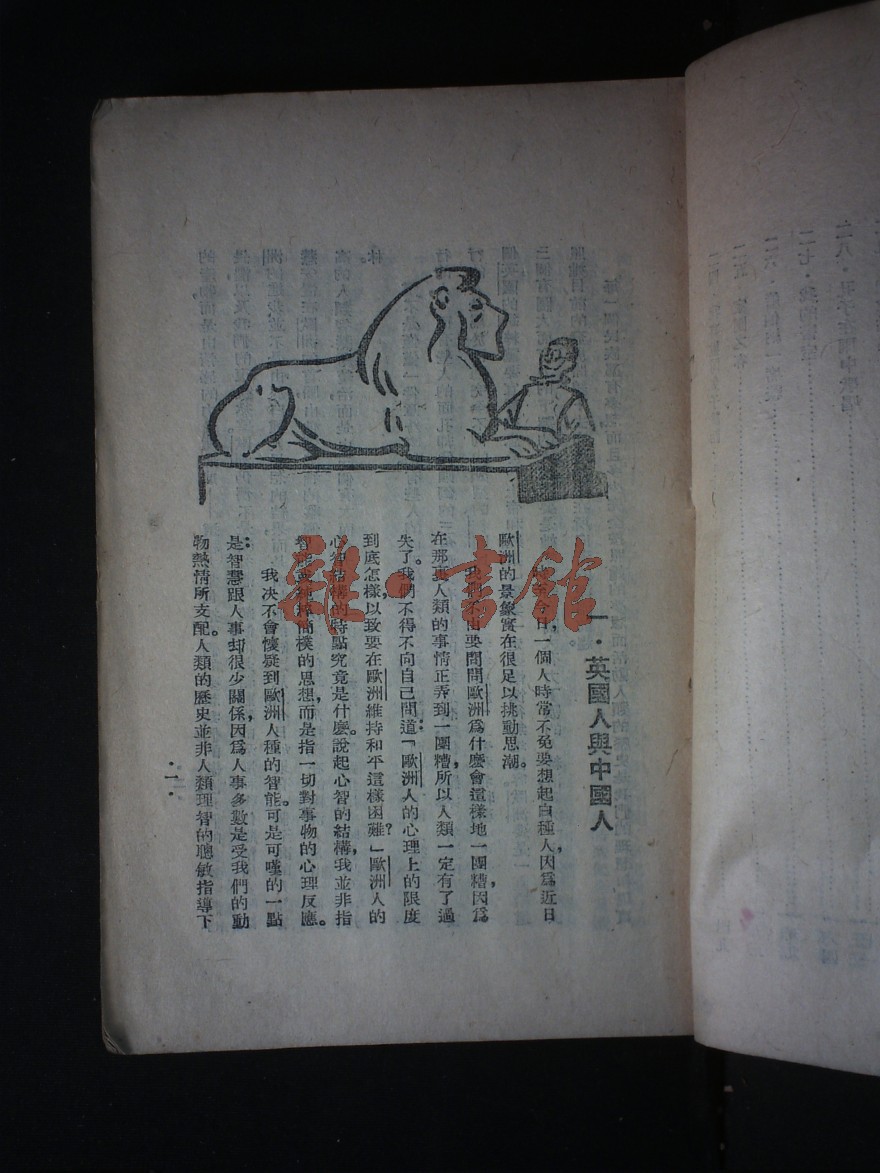 一・英國人與中國人
今日，一個人時常不免要想起白種人，因爲近日
歐洲的景象實在很足以挑動思潮。
我們不由要問問歐洲爲什麽會這樣地一團糟，因爲
在那裏人類的事情正弄到一團糟，所以人類一定有了過
失了。我們不得不向自己問道：「歐洲人的心理上的限度
到底怎樣，以致要在歐洲維持和平這樣困難？」歐洲人的
心智結構的特點究竟是什麽。說起心智的結構，我並非指
智能或純粹簡樸的思想，而是指一切對事物的心理反應。
我决不會懷疑到歐洲人種的智能。可是可嘆的一點
是：智慧跟人事却很少關係，因爲人事多數是受我們的動
物熱情所支配。人類的歷史並非人類理智的聰敏指導下
・一・
雜・書館
二七・我的
二六・